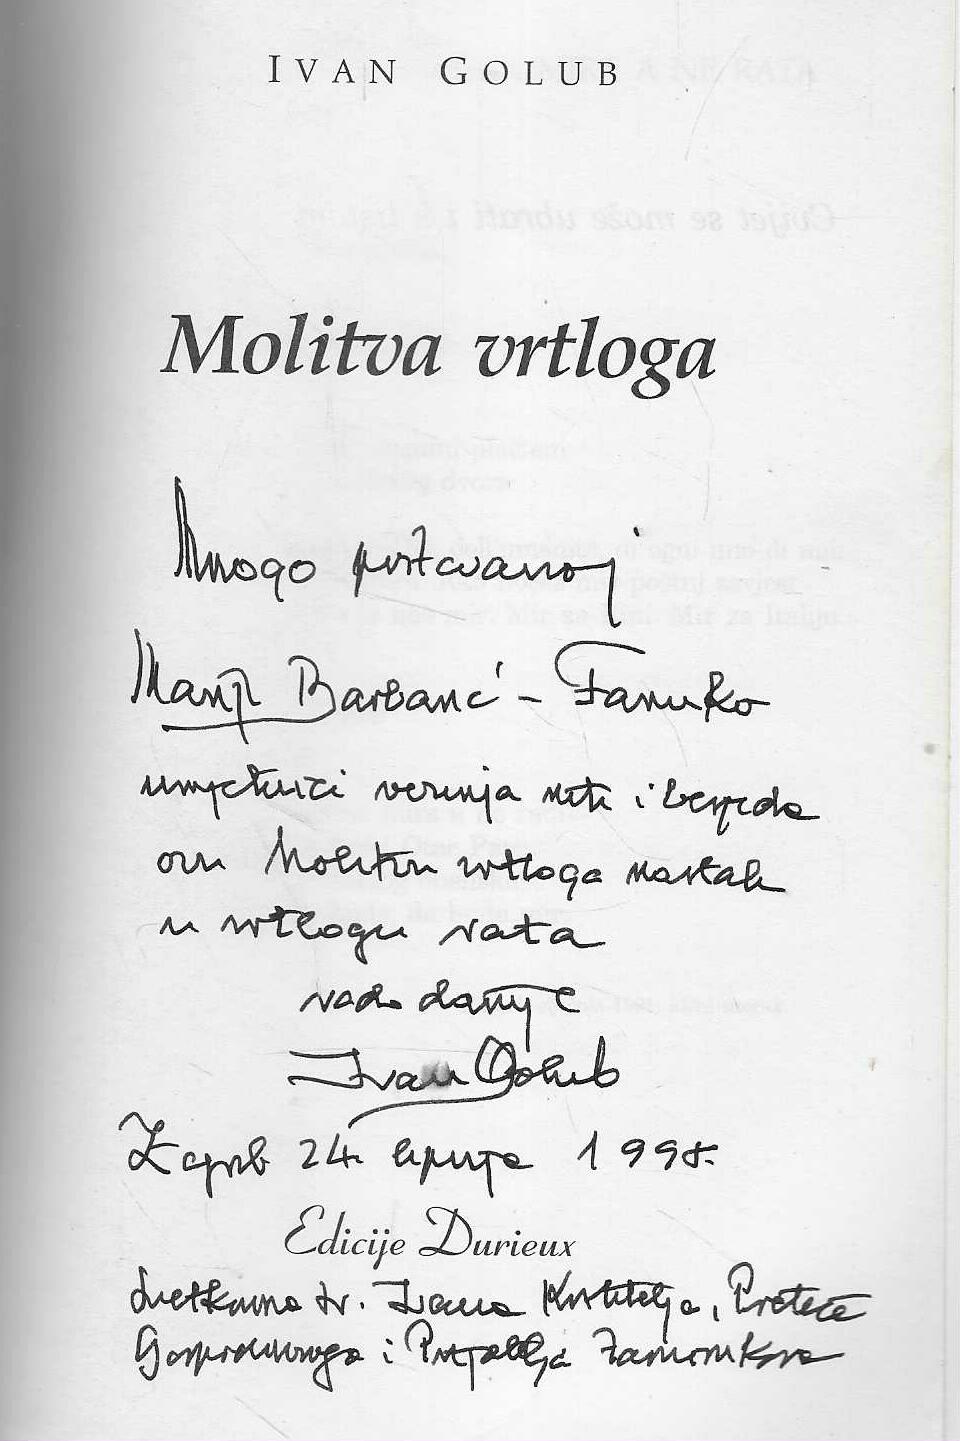 IVAN GOLUB
Molitva vrtloga
Mnogo poštovanoj
Mariji Barbarić-Fanuko
umjetnici verenja niti i besjeda
ovu Molitvu vrtloga nastalu
u vrtlogu rata
rado daruje
Ivan Golub
Zagreb 24. lipnja 1998.
Edicije Durieux
Svetkovina sv. Ivana Krstitelja, Preteče
Gospodinovoga i Prijatelja Zaručnikova